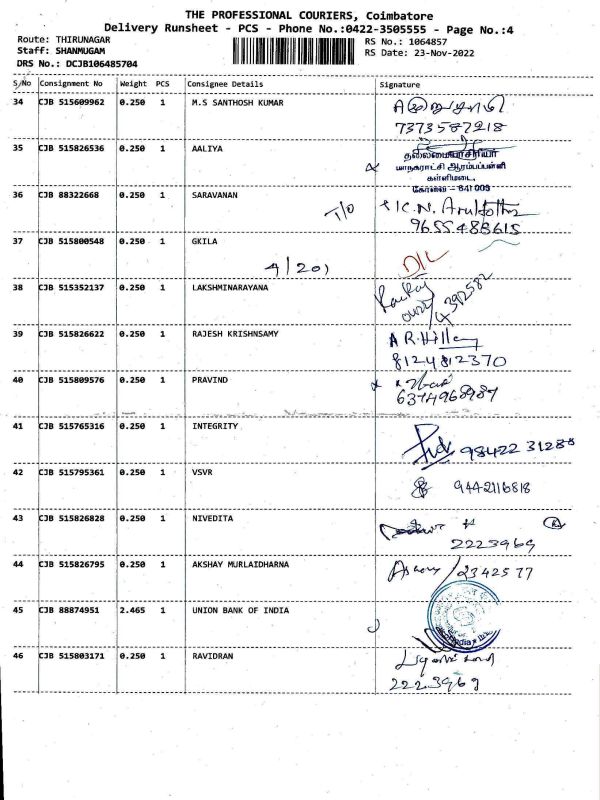 THE PROFESSIONAL COURIERS, Coimbatore
Delivery Runsheet - PCS - Phone No.:0422-3505555 - Page No.:4
Route: THIRUNAGAR RS No.: 1064857
Staff: SHANMUGAM RS Date: 23-Nov-2022
DRS No.: DCJB106485704
S/No Consignment No Weight PCS Consignee Details Signature
34 CJB 515609962 0.250 1 M.S SANTHOSH KUMAR
7373587218
35 CJB 515826536 0.250 1 AALIYA
தலைமையாசிரியர்
மாநகராட்சி ஆரம்பப்பள்ளி
கள்ளிமடை,
கோவை - 641 005
36 CJB 88322668 0.250 1 SARAVANAN
T/O
9655488615
37 CJB 515800548 0.250 1 GKILA
D/L
4/201
38 CJB 515352137 0.250 1 LAKSHMINARAYANA
39 CJB 515826622 0.250 1 RAJESH KRISHNSAMY
8124812370
40 CJB 515809576 0.250 1 PRAVIND
6374968987
41 CJB 515765316 0.250 1 INTEGRITY
98422 31288
42 CJB 515795361 0.250 1 VSVR
9442116818
43 CJB 515826828 0.250 1 NIVEDITA
2223969
44 CJB 515826795 0.250 1 AKSHAY MURLAIDHARNA
2342577
45 CJB 88874951 2.465 1 UNION BANK OF INDIA
46 CJB 515803171 0.250 1 RAVIDRAN
2223969